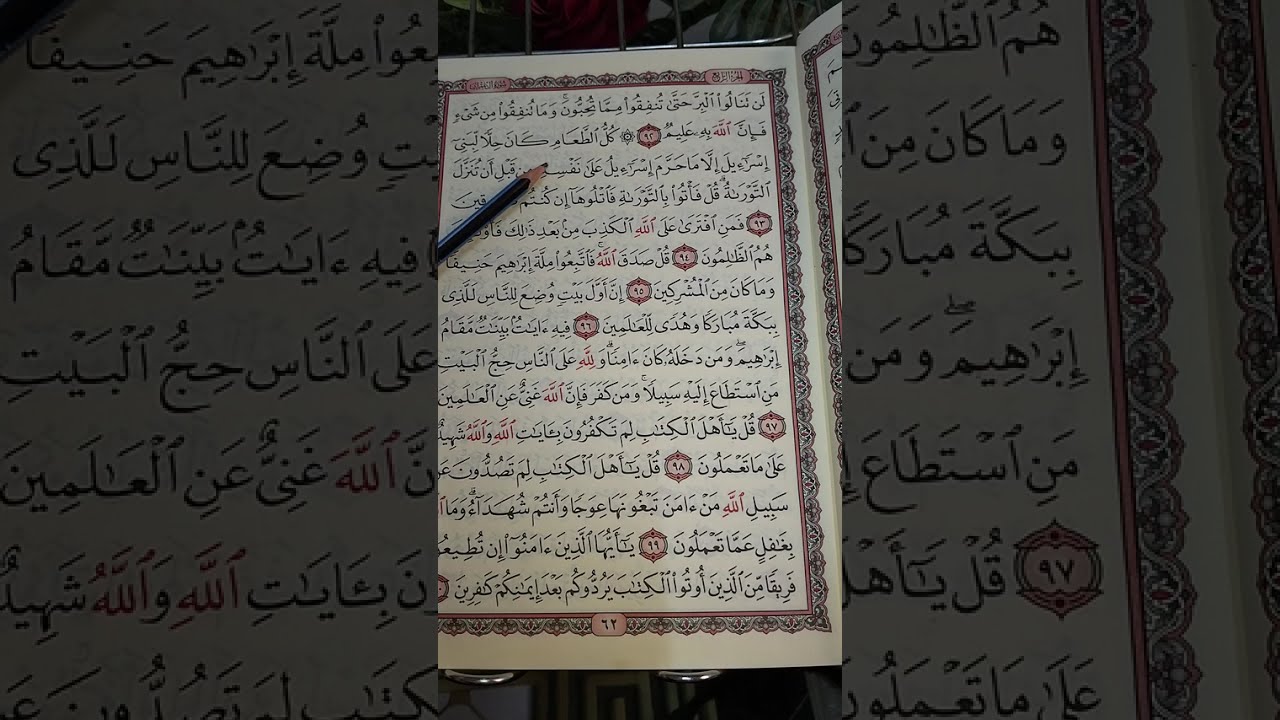 الجزء الرابع
لَن تَنَالُوا۟ ٱلْبِرَّ حَتَّىٰ تُنفِقُوا۟ مِمَّا تُحِبُّونَ ۚ وَمَا تُنفِقُوا۟ مِن شَىْءٍ
فَإِنَّ ٱللَّهَ بِهِۦ عَلِيمٌ ٩٢ ۞ كُلُّ ٱلطَّعَامِ كَانَ حِلًّا لِّبَنِىٓ
إِسْرَٰٓءِيلَ إِلَّا مَا حَرَّمَ إِسْرَٰٓءِيلُ عَلَىٰ نَفْسِهِۦ مِن قَبْلِ أَن تُنَزَّلَ
ٱلتَّوْرَىٰةُ ۗ قُلْ فَأْتُوا۟ بِٱلتَّوْرَىٰةِ فَٱتْلُوهَآ إِن كُنتُمْ
٩٣ فَمَنِ ٱفْتَرَىٰ عَلَى ٱللَّهِ ٱلْكَذِبَ مِنۢ بَعْدِ ذَٰلِكَ
هُمُ ٱلظَّٰلِمُونَ ٩٤ قُلْ صَدَقَ ٱللَّهُ ۗ فَٱتَّبِعُوا۟ مِلَّةَ إِبْرَٰهِيمَ حَنِيفًا
وَمَا كَانَ مِنَ ٱلْمُشْرِكِينَ ٩٥ إِنَّ أَوَّلَ بَيْتٍ وُضِعَ لِلنَّاسِ لَلَّذِى
بِبَكَّةَ مُبَارَكًا وَهُدًى لِّلْعَٰلَمِينَ ٩٦ فِيهِ ءَايَٰتٌۢ بَيِّنَٰتٌ مَّقَامُ
إِبْرَٰهِيمَ ۖ وَمَن دَخَلَهُۥ كَانَ ءَامِنًا ۗ وَلِلَّهِ عَلَى ٱلنَّاسِ حِجُّ ٱلْبَيْتِ
مَنِ ٱسْتَطَاعَ إِلَيْهِ سَبِيلًا ۚ وَمَن كَفَرَ فَإِنَّ ٱللَّهَ غَنِىٌّ عَنِ ٱلْعَٰلَمِينَ
٩٧ قُلْ يَٰٓأَهْلَ ٱلْكِتَٰبِ لِمَ تَكْفُرُونَ بِـَٔايَٰتِ ٱللَّهِ وَٱللَّهُ شَهِيدٌ
عَلَىٰ مَا تَعْمَلُونَ ٩٨ قُلْ يَٰٓأَهْلَ ٱلْكِتَٰبِ لِمَ تَصُدُّونَ عَن
سَبِيلِ ٱللَّهِ مَنْ ءَامَنَ تَبْغُونَهَا عِوَجًا وَأَنتُمْ شُهَدَآءُ ۗ وَمَا
بِغَٰفِلٍ عَمَّا تَعْمَلُونَ ٩٩ يَٰٓأَيُّهَا ٱلَّذِينَ ءَامَنُوٓا۟ إِن تُطِيعُوا۟
فَرِيقًا مِّنَ ٱلَّذِينَ أُوتُوا۟ ٱلْكِتَٰبَ يَرُدُّوكُم بَعْدَ إِيمَٰنِكُمْ كَٰفِرِينَ
٦٢